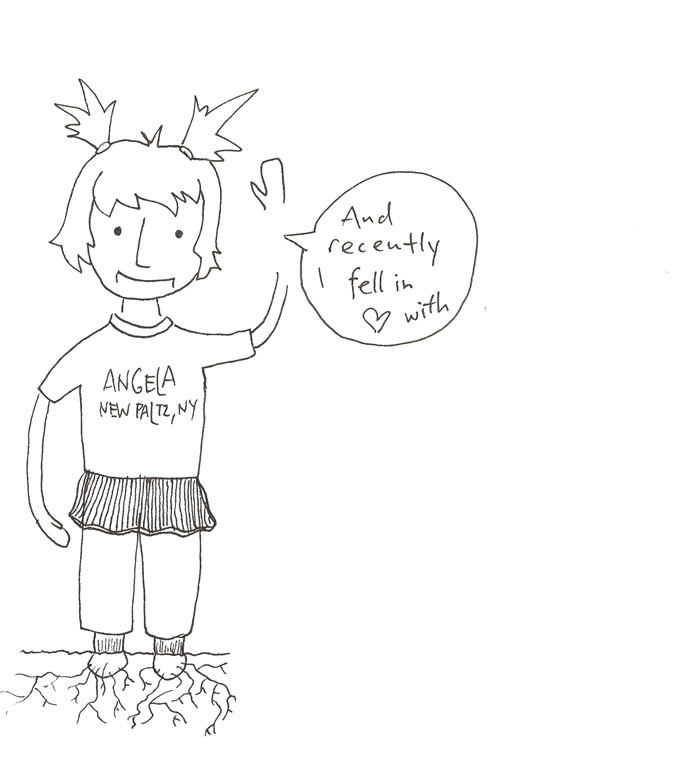 And
recently
I fell in
♡ with
ANGELA
NEW PALTZ, NY